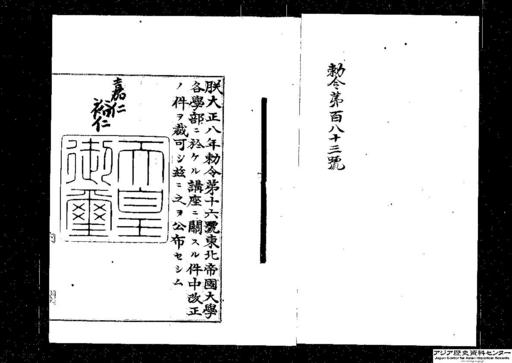 勅令第百八十三號
朕大正八年勅令第十六號東北帝國大學
各學部ニ於ケル講座ニ關スル件中改正
ノ件ヲ裁可シ茲ニ之ヲ公布セシム
嘉仁
裕仁
天皇
御璽
内閣
アジア歴史資料センター
Japan Center for Asian Historical Records